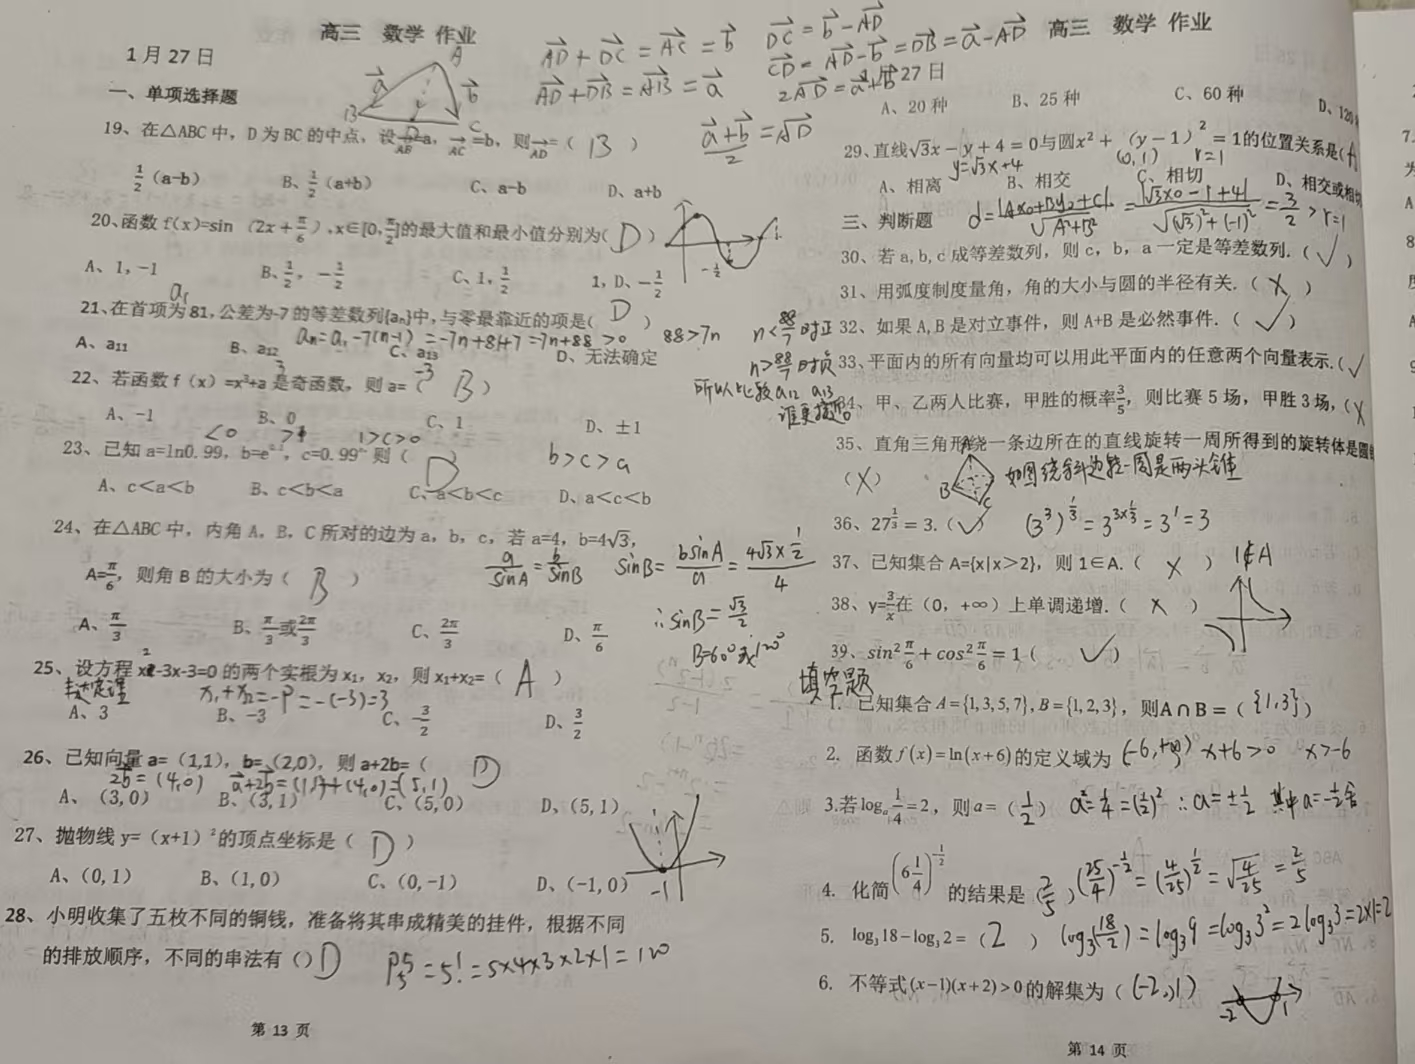 高三 数学 作业
1月27日
一、单项选择题
A
B
D
C
a⃗
b⃗
AD⃗+DC⃗=AC⃗=b⃗
AD⃗+DB⃗=AB⃗=a⃗
DC⃗=b⃗-AD⃗
CD⃗=AD⃗-b⃗=DB⃗=a⃗-AD⃗
2AD⃗=a⃗+b⃗
(a⃗+b⃗)/2=AD⃗
19、在△ABC中，D为BC的中点，设AB⃗=a，AC⃗=b，则AD⃗=（ B ）
1/2（a-b） B、1/2（a+b） C、a-b D、a+b
20、函数 f(x)=sin（2x+π/6）,x∈[0,π/2]的最大值和最小值分别为( D )
-1/2
A、1，-1 B、1/2，-1/2 C、1，1/2 1, D、-1/2
a₁
21、在首项为81,公差为-7的等差数列{aₙ}中,与零最靠近的项是( D )
aₙ=a₁-7(n-1)=-7n+81+7=-7n+88>0 88>7n n<88/7时正
A、a₁₁ B、a₁₂ C、a₁₃ D、无法确定
n>88/7时负
所以比较a₁₂ a₁₃
22、若函数 f（x）=x³+a 是奇函数，则 a=（ B ）
A、-1 B、0 C、1 D、±1
<0 >1 1>c>0
23、已知 a=ln0.99, b=e , c=0.99 则（ D ） b>c>a
A、c<a<b B、c<b<a C、a<b<c D、a<c<b
24、在△ABC中，内角A，B，C所对的边为a，b，c，若a=4，b=4√3，
A=π/6，则角B的大小为（ B ）
a/sinA=b/sinB sinB=bsinA/a=(4√3×1/2)/4
∴sinB=√3/2
B=60°或120°
A、π/3 B、π/3或2π/3 C、2π/3 D、π/6
25、设方程 x²-3x-3=0 的两个实根为 x₁，x₂，则 x₁+x₂=（ A ）
韦达定理 x₁+x₂=-P=-(-3)=3
A、3 B、-3 C、-3/2 D、3/2
26、已知向量 a=（1,1），b=（2,0），则 a+2b=（ D ）
2b⃗=(4,0) a⃗+2b⃗=(1,1)+(4,0)=(5,1)
A、（3,0） B、（3,1） C、（5,0） D、（5,1）
27、抛物线 y=（x+1）²的顶点坐标是（ D ）
-1
A、（0,1） B、（1,0） C、（0,-1） D、（-1,0）
28、小明收集了五枚不同的铜钱，准备将其串成精美的挂件，根据不同
的排放顺序，不同的串法有（）D P⁵₅=5!=5×4×3×2×1=120
第 13 页
高三 数学 作业
1月27日
A、20种 B、25种 C、60种 D、120
29、直线√3x-y+4=0与圆x²+（y-1）²=1的位置关系是(A
y=√3x+4 (0,1) r=1
A、相离 B、相交 C、相切 D、相交或相切
三、判断题 d=|Ax₀+By₀+C|/√(A²+B²)=|√3×0-1+4|/√((√3)²+(-1)²)=3/2>r=1
30、若 a,b,c 成等差数列，则 c，b，a 一定是等差数列.（ √ ）
31、用弧度制度量角，角的大小与圆的半径有关.（ × ）
32、如果A,B是对立事件，则A+B是必然事件.（ √ ）
33、平面内的所有向量均可以用此平面内的任意两个向量表示.（√
34、甲、乙两人比赛，甲胜的概率3/5，则比赛5场，甲胜3场,（×
35、直角三角形绕一条边所在的直线旋转一周所得到的旋转体是圆
（×） A B C 如图绕斜边转一周是两头锥
36、27^(1/3)=3.（ √ ） (3³)^(1/3)=3^(3×1/3)=3¹=3
37、已知集合 A={x|x>2}，则 1∈A.（ × ） 1∉A
38、y=3/x在（0，+∞）上单调递增.（ × ）
39、sin²π/6+cos²π/6=1（ √ ）
填空题
1. 已知集合 A={1,3,5,7}, B={1,2,3}，则A∩B=（{1,3}）
2. 函数 f(x)=ln(x+6)的定义域为(-6,+∞) x+6>0 x>-6
3.若logₐ1/4=2，则a=（1/2） a²=1/4=(1/2)² ∴a=±1/2 其中a=-1/2舍
4. 化简(6 1/4)^(-1/2)的结果是(2/5) (25/4)^(-1/2)=(4/25)^(1/2)=√(4/25)=2/5
5. log₃18-log₃2=（2 ） log₃(18/2)=log₃9=log₃3²=2log₃3=2×1=2
6. 不等式(x-1)(x+2)>0的解集为（(-2,1)
-2 1
第 14 页